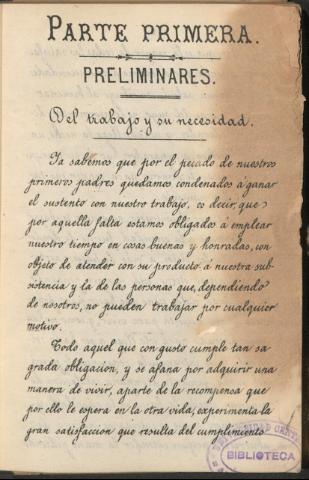 PARTE PRIMERA.
PRELIMINARES.
Del trabajo y su necesidad.
Ya sabemos que por el pecado de nuestros
primeros padres quedamos condenados á ganar
el sustento con nuestro trabajo, es decir, que
por aquella falta estamos obligados á emplear
nuestro tiempo en cosas buenas y honradas, con
objeto de atender con su producto á nuestra sub-
sistencia y la de las personas que, dependiendo
de nosotros, no pueden trabajar por cualquier
motivo.
Todo aquel que con gusto cumple tan sa
grada obligacion, y se afana por adquirir una
manera de vivir, aparte de la recompensa que
por ello le espera en la otra vida, experimenta la
gran satisfaccion que resulta del cumplimiento
BIBLIOTECA